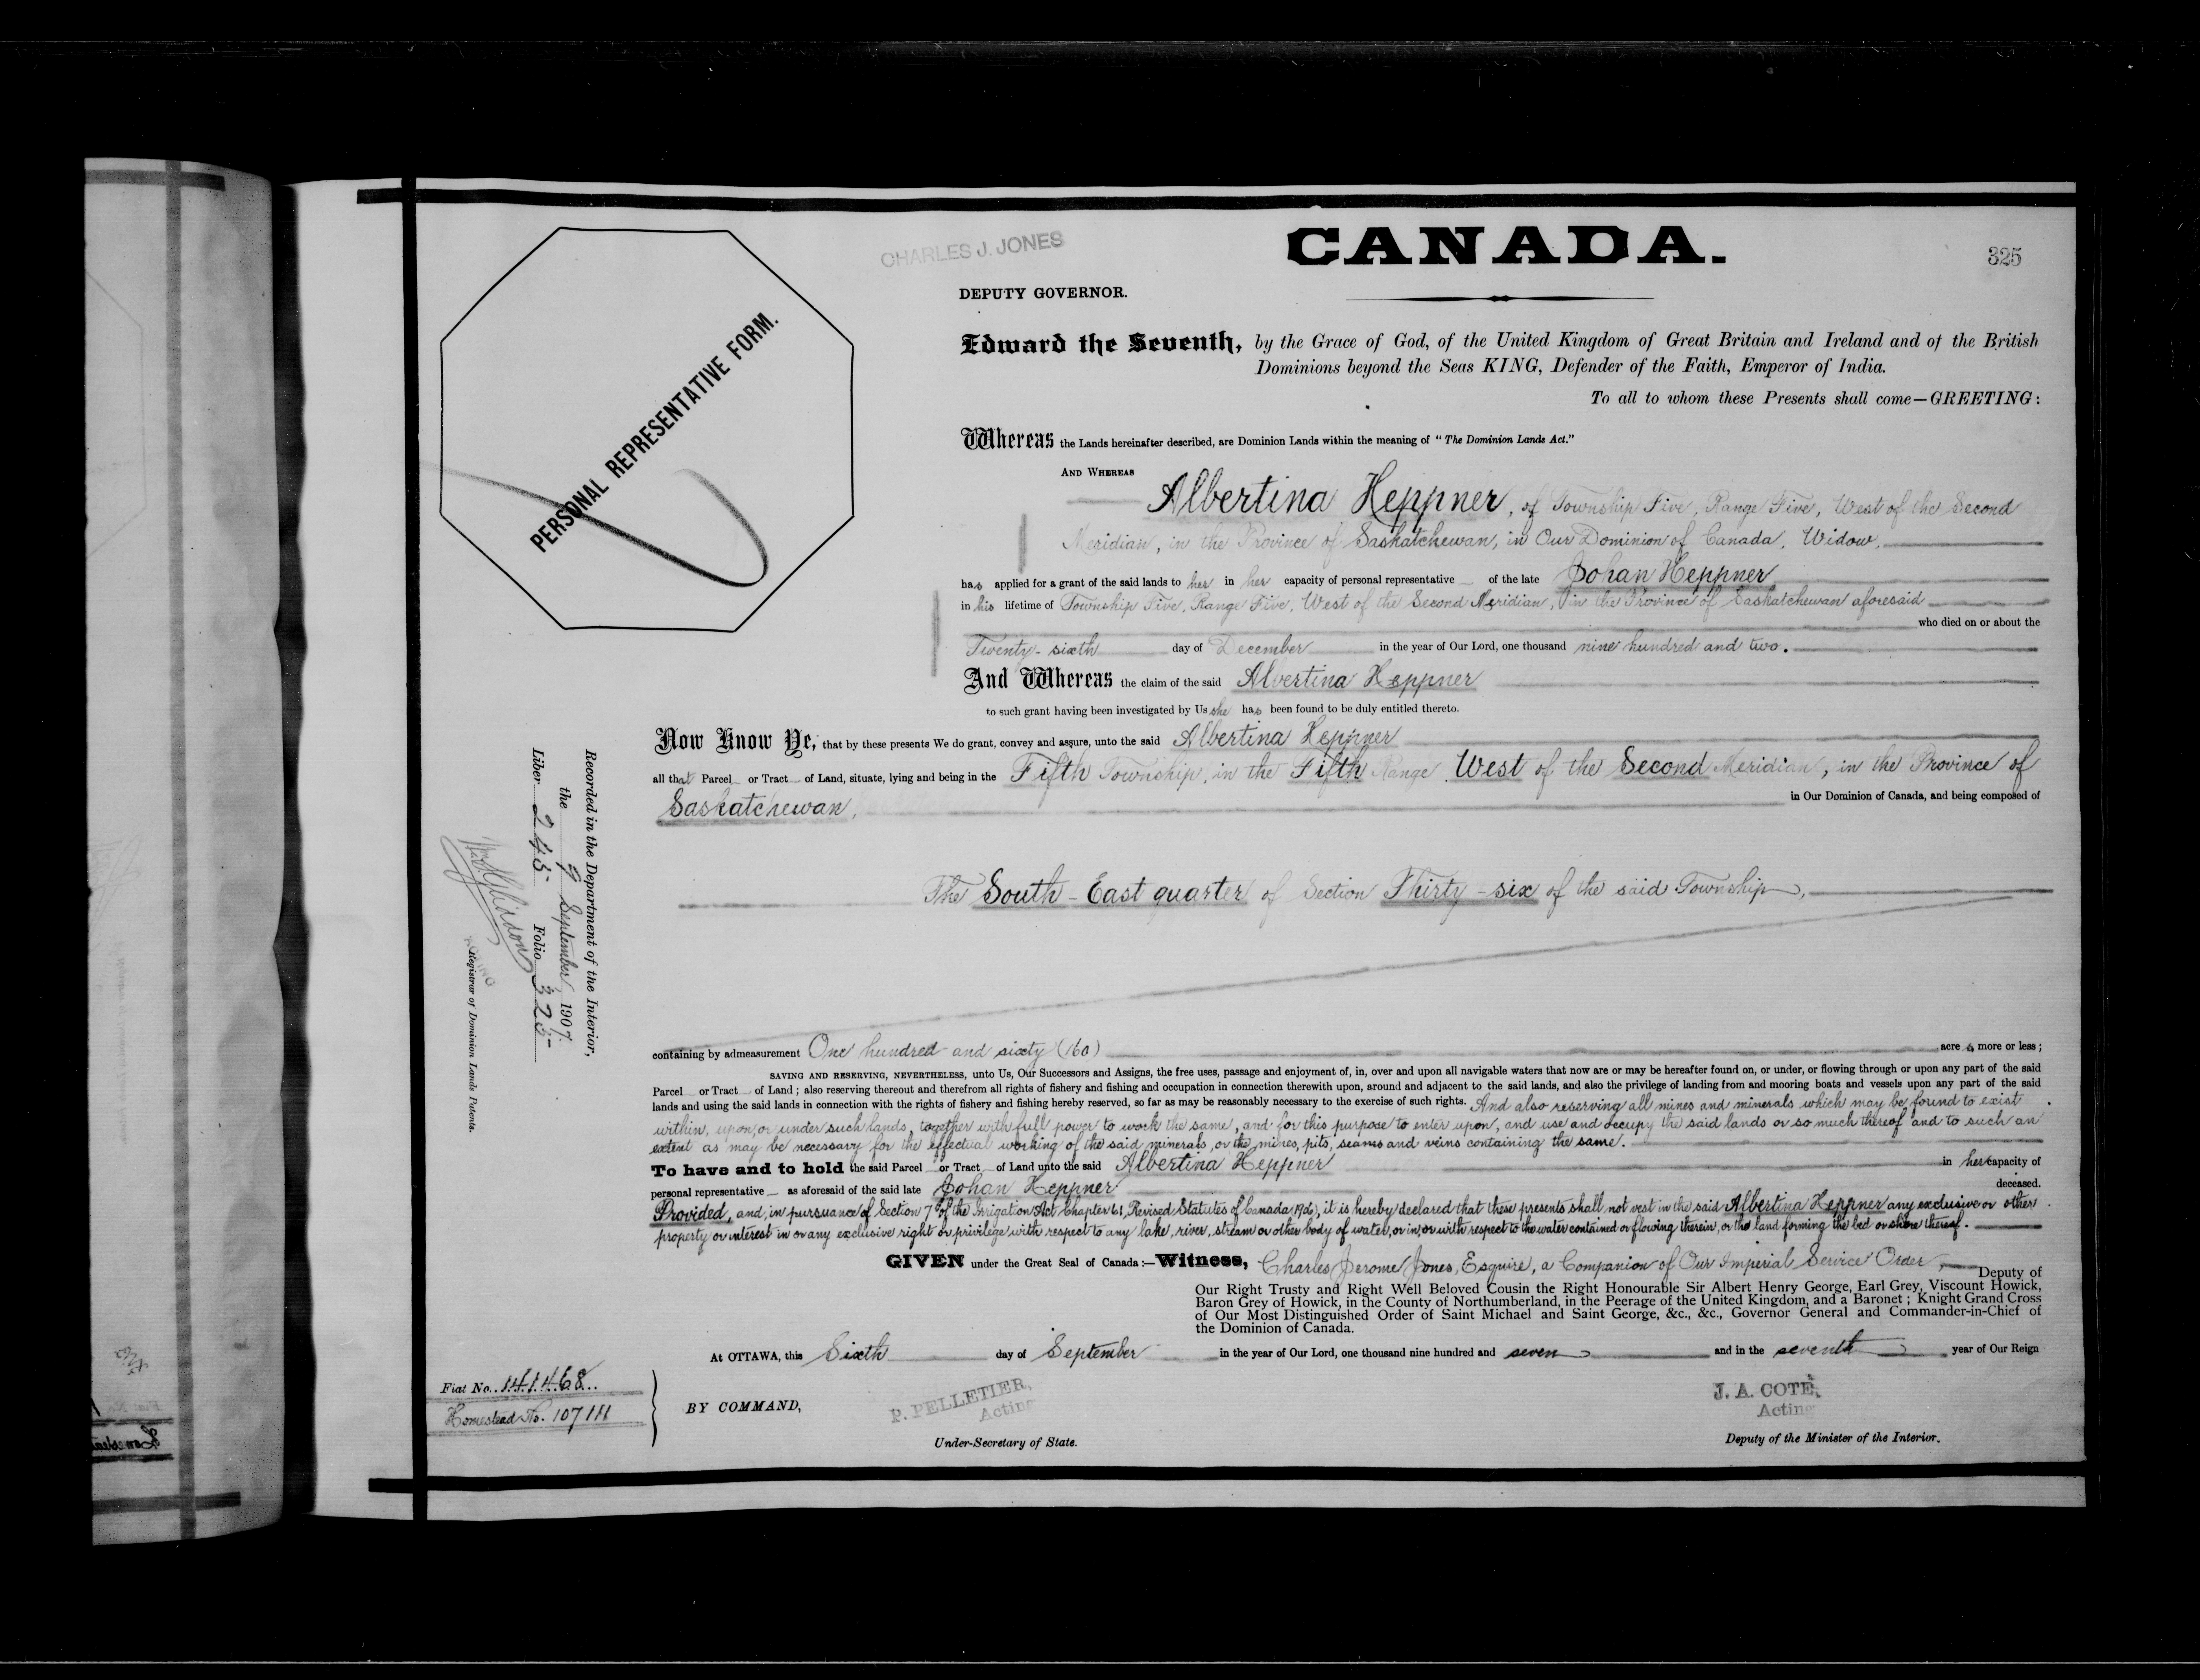 CHARLES J. JONES
CANADA.
325
DEPUTY GOVERNOR.
PERSONAL REPRESENTATIVE FORM.
Edward the Seventh, by the Grace of God, of the United Kingdom of Great Britain and Ireland and of the British
Dominions beyond the Seas KING, Defender of the Faith, Emperor of India.
To all to whom these Presents shall come—GREETING:
Whereas the Lands hereinafter described, are Dominion Lands within the meaning of "The Dominion Lands Act."
AND WHEREAS
Albertina Heppner, of Township Five, Range Five, West of the Second
Meridian, in the Province of Saskatchewan, in Our Dominion of Canada, Widow,
has applied for a grant of the said lands to her in her capacity of personal representative of the late Johan Heppner
in his lifetime of Township Five, Range Five, West of the Second Meridian, in the Province of Saskatchewan aforesaid
who died on or about the
Twenty-sixth day of December in the year of Our Lord, one thousand nine hundred and two.
And Whereas the claim of the said Albertina Heppner
to such grant having been investigated by Us she has been found to be duly entitled thereto.
Now Know Ye, that by these presents We do grant, convey and assure, unto the said Albertina Heppner
all that Parcel or Tract of Land, situate, lying and being in the Fifth Township, in the Fifth Range West of the Second Meridian, in the Province of
Saskatchewan, in Our Dominion of Canada, and being composed of
The South-East quarter of Section Thirty-six of the said Township,
Recorded in the Department of the Interior,
the 9 September 1907.
Liber 245 Folio 325
Registrar of Dominion Lands Patents.
containing by admeasurement One hundred and sixty (160) acres more or less;
SAVING AND RESERVING, NEVERTHELESS, unto Us, Our Successors and Assigns, the free uses, passage and enjoyment of, in, over and upon all navigable waters that now are or may be hereafter found on, or under, or flowing through or upon any part of the said
Parcel or Tract of Land; also reserving thereout and therefrom all rights of fishery and fishing and occupation in connection therewith upon, around and adjacent to the said lands, and also the privilege of landing from and mooring boats and vessels upon any part of the said
lands and using the said lands in connection with the rights of fishery and fishing hereby reserved, so far as may be reasonably necessary to the exercise of such rights. And also reserving all mines and minerals which may be found to exist
within, upon, or under such lands, together with full power to work the same, and for this purpose to enter upon, and use and occupy the said lands or so much thereof and to such an
extent as may be necessary for the effectual working of the said minerals, or the mines, pits, seams and veins containing the same.
To have and to hold the said Parcel or Tract of Land unto the said Albertina Heppner in her capacity of
personal representative as aforesaid of the said late Johan Heppner deceased.
Provided, and, in pursuance of Section 7 of the Irrigation Act Chapter 61, Revised Statutes of Canada 1906, it is hereby declared that these presents shall not vest in the said Albertina Heppner any exclusive or other
property or interest in or any exclusive right or privilege with respect to any lake, river, stream or other body of water, or in, or with respect to the water contained or flowing therein, or the land forming the bed or shore thereof.
GIVEN under the Great Seal of Canada:—Witness, Charles Jerome Jones, Esquire, a Companion of Our Imperial Service Order, Deputy of
Our Right Trusty and Right Well Beloved Cousin the Right Honourable Sir Albert Henry George, Earl Grey, Viscount Howick,
Baron Grey of Howick, in the County of Northumberland, in the Peerage of the United Kingdom, and a Baronet; Knight Grand Cross
of Our Most Distinguished Order of Saint Michael and Saint George, &c., &c., Governor General and Commander-in-Chief of
the Dominion of Canada.
At OTTAWA, this Sixth day of September in the year of Our Lord, one thousand nine hundred and seven and in the seventh year of Our Reign
Fiat No. 141468
Homestead No. 107111
BY COMMAND,
P. PELLETIER,
Acting
Under-Secretary of State.
J. A. COTÉ,
Acting
Deputy of the Minister of the Interior.